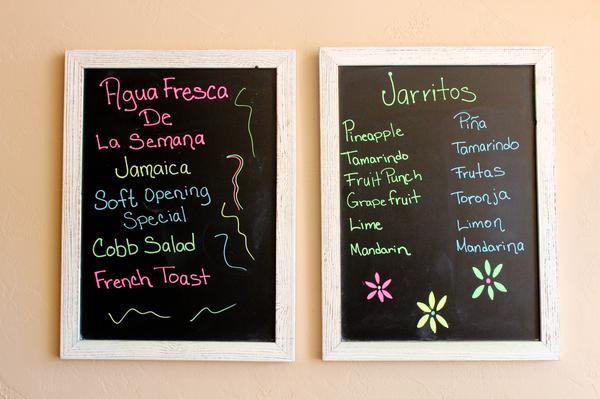 Agua Fresca
De
La Semana
Jamaica
Soft Opening
Special
Cobb Salad
French Toast
Jarritos
Pineapple Piña
Tamarindo Tamarindo
Fruit Punch Frutas
Grapefruit Toronja
Lime Limon
Mandarin Mandarina